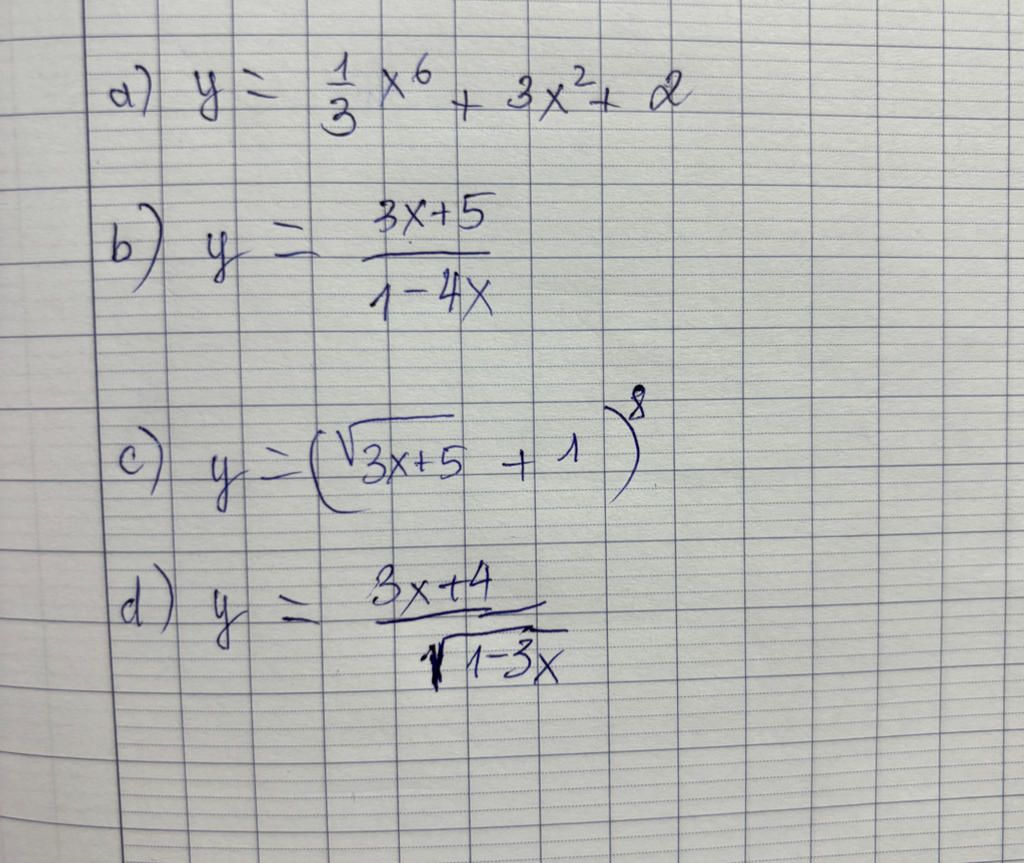 a) y = 1/3 x^6 + 3x^2 + 2
b) y = (3x+5)/(1-4x)
c) y = (√(3x+5) + 1)^8
d) y = (3x+4)/√(1-3x)